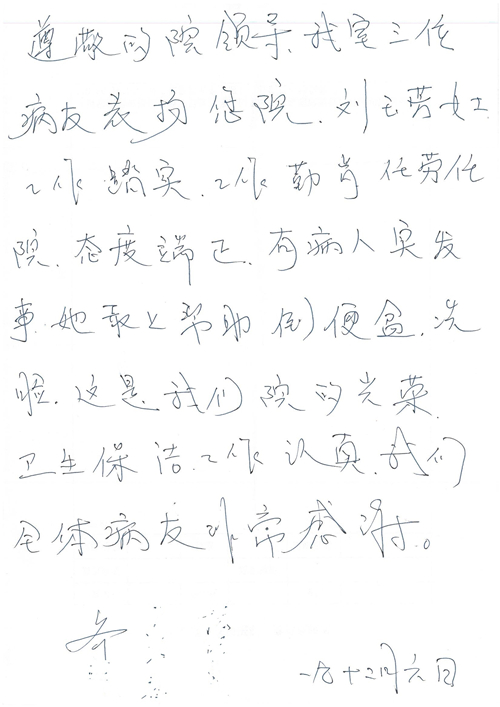 尊敬的院领导.我室三位
病友表扬您院.刘玉芳女士
工作踏实.工作勤肯任劳任
院.态度端正.有病人突发
事.她马上帮助倒便盆.洗
脸.这是.我们院的光荣.
卫生保洁.工作认真.我们
全体病友非常感谢。
乔
一九十二月六日